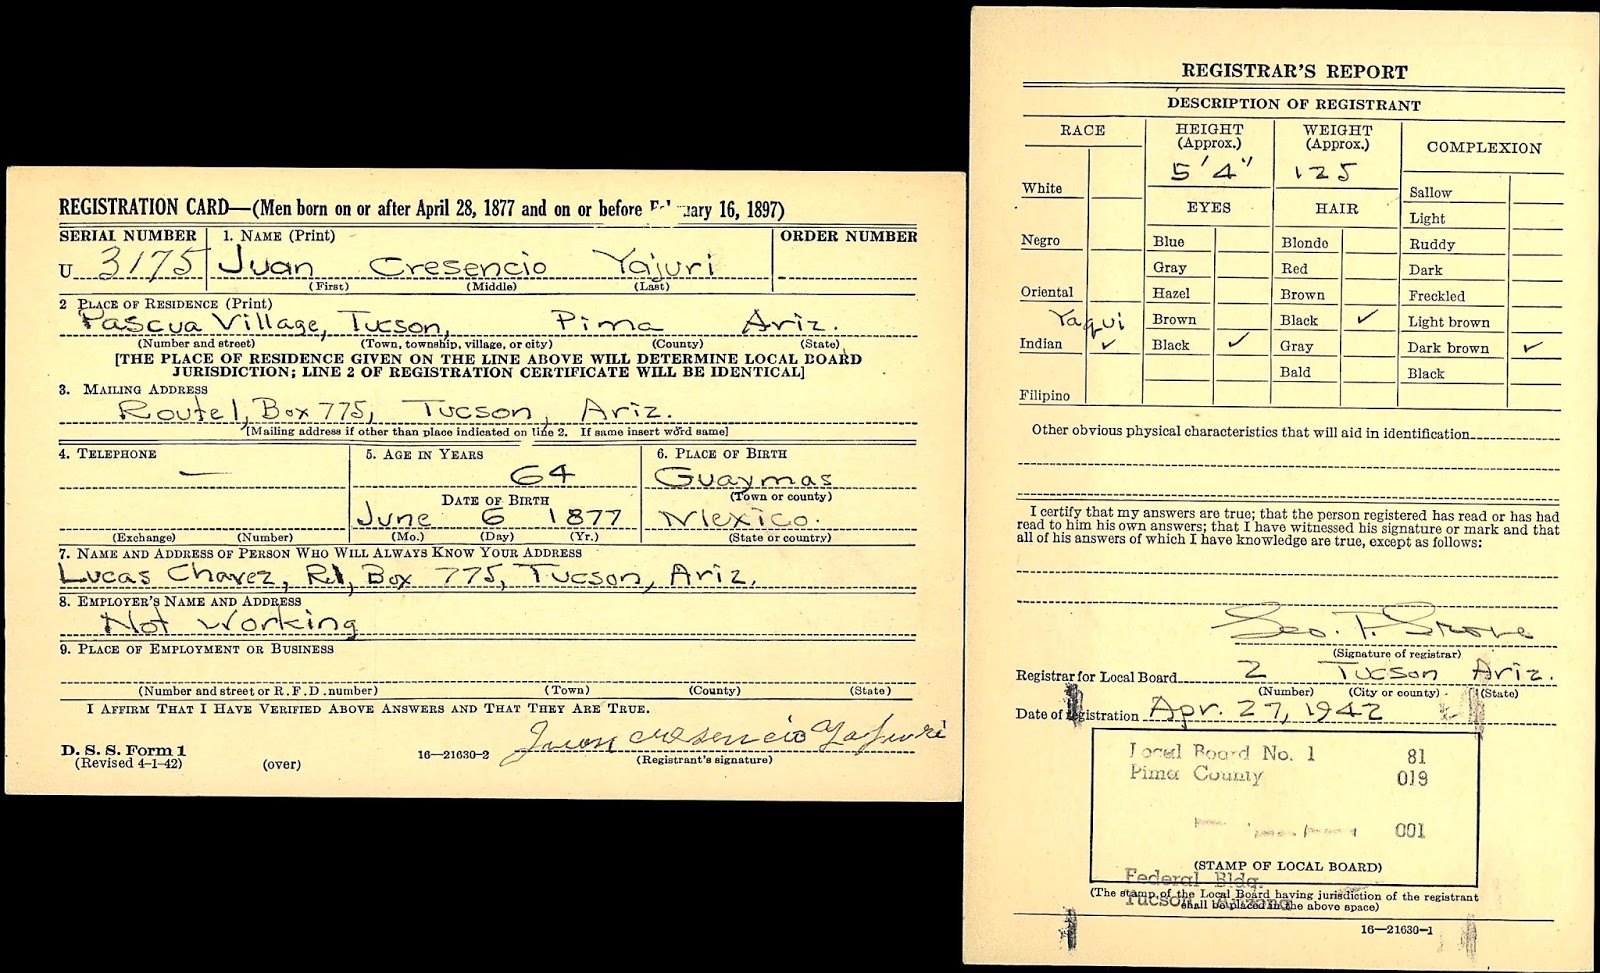 REGISTRATION CARD—(Men born on or after April 28, 1877 and on or before February 16, 1897)
SERIAL NUMBER 1. NAME (Print) ORDER NUMBER
U 3175 Juan Cresencio Yajuri
(First) (Middle) (Last)
2 PLACE OF RESIDENCE (Print)
Pascua Village, Tucson, Pima Ariz.
(Number and street) (Town, township, village, or city) (County) (State)
[THE PLACE OF RESIDENCE GIVEN ON THE LINE ABOVE WILL DETERMINE LOCAL BOARD
JURISDICTION; LINE 2 OF REGISTRATION CERTIFICATE WILL BE IDENTICAL]
3. MAILING ADDRESS
Route 1, Box 775, Tucson, Ariz.
[Mailing address if other than place indicated on line 2. If same insert word same]
4. TELEPHONE 5. AGE IN YEARS 6. PLACE OF BIRTH
— 64 Guaymas
DATE OF BIRTH (Town or county)
June 6 1877 Mexico.
(Exchange) (Number) (Mo.) (Day) (Yr.) (State or country)
7. NAME AND ADDRESS OF PERSON WHO WILL ALWAYS KNOW YOUR ADDRESS
Lucas Chavez, R1, Box 775, Tucson, Ariz.
8. EMPLOYER'S NAME AND ADDRESS
Not Working
9. PLACE OF EMPLOYMENT OR BUSINESS
(Number and street or R. F. D. number) (Town) (County) (State)
I AFFIRM THAT I HAVE VERIFIED ABOVE ANSWERS AND THAT THEY ARE TRUE.
Juan cresencio Yajuri
D. S. S. Form 1 16—21630-2 (Registrant's signature)
(Revised 4-1-42) (over)
REGISTRAR'S REPORT
DESCRIPTION OF REGISTRANT
RACE HEIGHT (Approx.) WEIGHT (Approx.) COMPLEXION
5'4" 125
White Sallow
EYES HAIR Light
Negro Blue Blonde Ruddy
Gray Red Dark
Oriental Hazel Brown Freckled
Yaqui Brown Black ✓ Light brown
Indian ✓ Black ✓ Gray Dark brown ✓
Bald Black
Filipino
Other obvious physical characteristics that will aid in identification
I certify that my answers are true; that the person registered has read or has had
read to him his own answers; that I have witnessed his signature or mark and that
all of his answers of which I have knowledge are true, except as follows:
Geo. T. Grove
(Signature of registrar)
Registrar for Local Board 2 Tucson Ariz.
(Number) (City or county) (State)
Date of registration Apr. 27, 1942
Local Board No. 1 81
Pima County 019
001
(STAMP OF LOCAL BOARD)
Federal Bldg.
(The stamp of the Local Board having jurisdiction of the registrant
Tucson Arizona
shall be placed in the above space)
16—21630-1